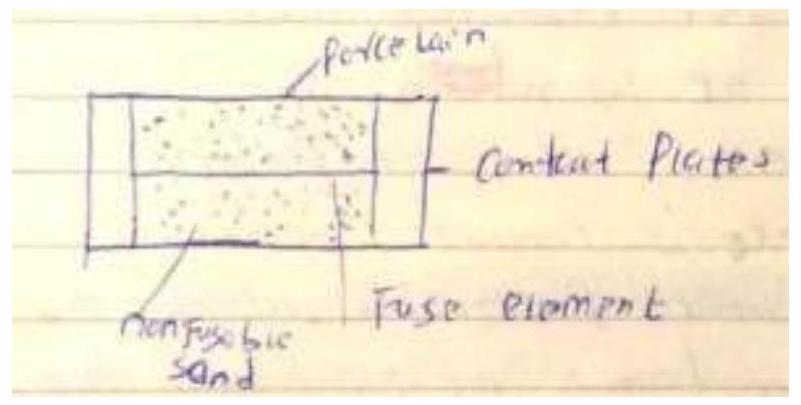 Porcelain
Contact Plates
Fuse element
nonfusable
sand